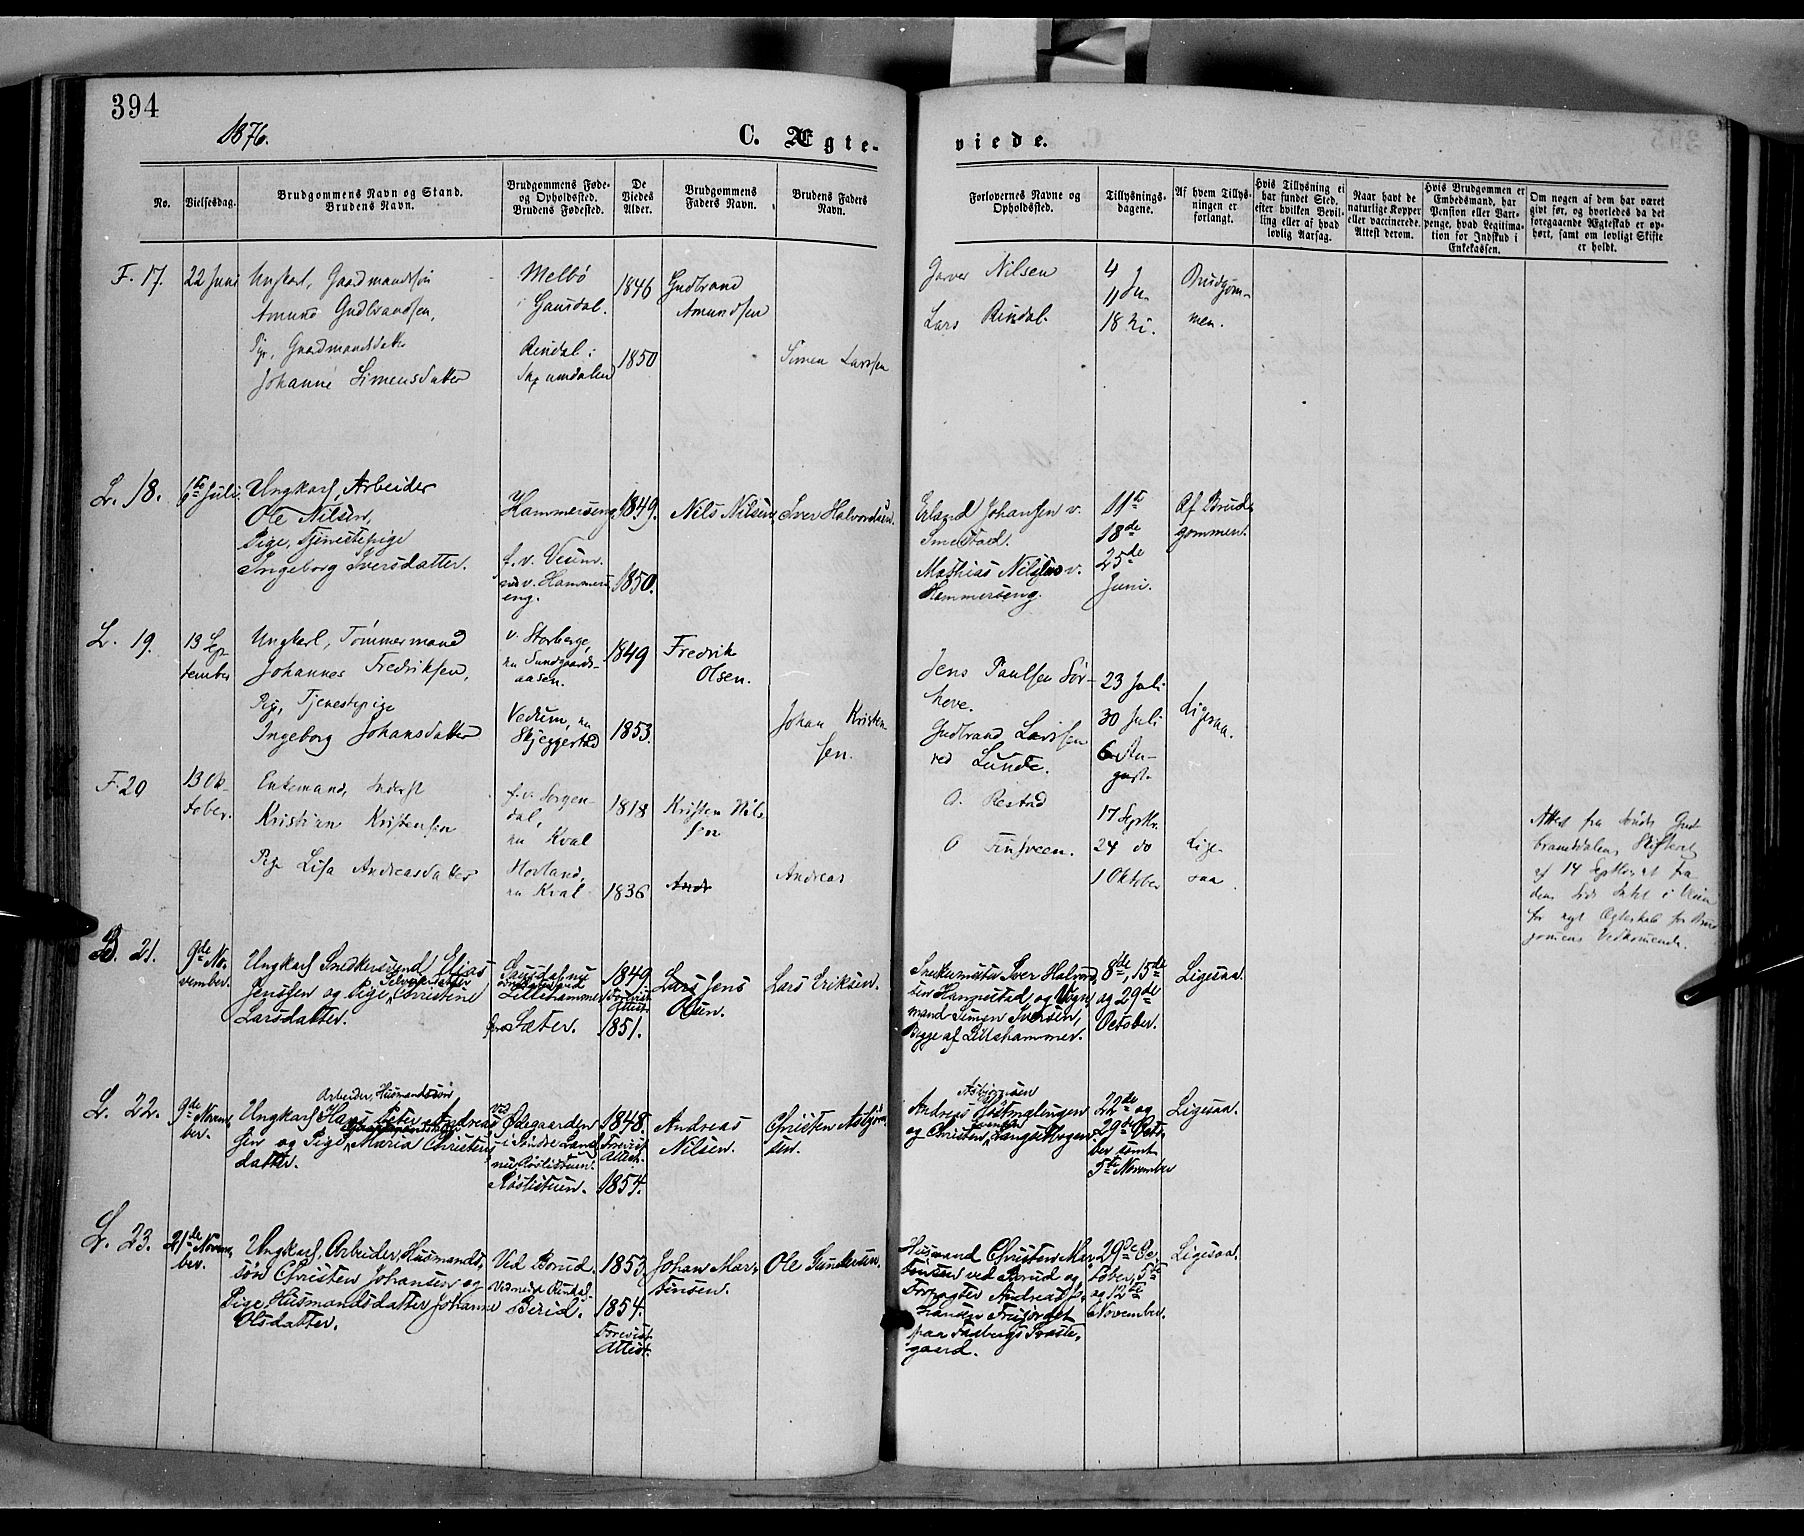 394
1876.
C. Ægte-
viede.
No.
Vielsesdag.
Brudgommens Navn og Stand.
Brudens Navn.
Brudgommens Føde-
og Opholdssted.
Brudens Fødested.
De
Viedes
Alder.
Brudgommens
Faders Navn.
Brudens Faders
Navn.
Forlovernes Navne og
Opholdssted.
Tillysnings-
dagene.
Af hvem Tillys-
ningen er
forlangt.
Hvis Tillysning ei
har fundet Sted,
efter hvilken Bevil-
ling eller af hvad
lovlig Aarsag.
Naar havt de
naturlige Kopper
eller vaccinerede.
Attest derom.
Hvis Brudgommen er
Embedsmand, har
Pension eller Vart-
penge, hvad Legitima-
tion for Indskud i
Enkekassen.
Om nogen af dem har været
gift før, og hvorledes da det
foregaaende Ægteskab er op-
hørt, samt om lovligt Skifte
er holdt.
F. 17.
22 Juni
Ungkarl, Gaardmandssøn
Amund Gudbrandsen,
Pige, Gaardmandsdatter
Johanne Simensdatter
Melbö
i Gausdal.
Rindal i
1846
1850
Gudbrand
Amundsen
Simen Larssen
Nilsen
Lars Rindal.
4
11 Ju-
18 ni.
Brudgom-
men.
L. 18.
Juli.
Ungkarl, Arbeider
Ole Nilsen,
Pige, Tjenestepige
Ingeborg Iversdatter.
Hammerseng.
f. v. Veum.
nu v. Hammers
eng.
1849.
1850.
Nils Nilsen
Iver Halvorsen.
Erland Johansen v.
Smestad.
Mathias Nilsen v.
Hammerseng.
11te
18de
25de
Juni.
Af Brud-
gommen.
L. 19.
13 Sep-
tember
Ungkarl, Tömmermand
Johannes Fredriksen,
Pige, Tjenestepige
Ingeborg Johansdatter
v. Storberge,
nu Sundgaards-
aasen.
Vedum, nu
Skjeggerstad
1849
1853.
Fredrik
Olsen.
Johan Kristen
sen.
Jens Paulsen Sör-
hove.
Gudbrand Larssen
ved Lunde.
23 Juli
30 Juli
6 Au-
gust.
Ligesaa.
F. 20
13 Ok-
tober.
Enkemand, Inderst
Kristian Kristensen
Pige Lisa Andreasdatter
f. v. Sorgen-
dal,
nu Kval
nu Kval
1818
1836
Kristen Nils
sen
Andreas
O. Restad
O
17 Septbr.
24 do
1 Oktober
Lige-
saa.
Attest fra Söndre Gud-
brandsdalens Skifteret
af 14 Septbr
L. 21.
9de No-
vember.
Ungkarl Snedkersvend Elias
Jenssen og Pige Christine
Larsdatter.
Gausdal nu
Lillehammer
Sæter.
1849.
Forevist
Attest.
1851.
Jens
Olsen.
Lars Eriksen.
Snedkermester Iver Halvor-
sen Hangstad, og Vogn-
mand Simen Iversen,
Begge af Lillehammer.
8de, 15de
og 29de
October.
Ligesaa.
L. 22.
9de Novem-
ber.
Arbeider, Husmandssön
Ungkarl Hans Peter Andreas
sen og Pige, Maria Christens
datter.
Ved
Ödegaarden
i Söndre Land
nu Röslistuen.
Röslistuen.
1848.
Forevist
Attest.
1854.
Andreas
Nilsen.
Christen Asbjörn-
sen.
Asbjørnsen
Andreas
og Christen
22de og
29de Octo-
ber samt
5te November
Ligesaa.
L. 23.
21de Novem-
ber.
Ungkarl, Arbeider, Husmands-
sön Christen Johansen og
Pige Husmandsdatter Johanne
Olsdatter.
Ved Borud.
Berid.
1853.
1854.
Forevist
Attest.
Johan Mar-
tinsen.
Ole Gundersen.
Husmand Christen Mar-
tinsen ved Borud og
Forpagter Andreas Jo-
hansen
paa Faabergs Præste-
gaard.
29de Oc-
tober, 5te
og 12te
November.
Ligesaa.